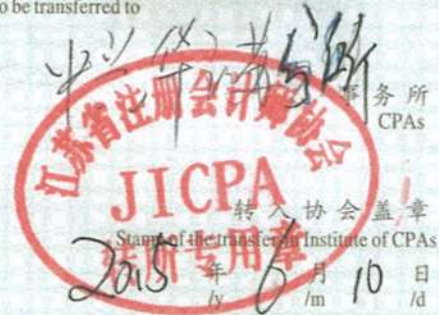 o be transferred to
事务所
CPAs
江苏省注册会计师协会
JICPA
转所专用章
转入协会盖章
Stamp of the transfer-in Institute of CPAs
2015 年 6 月 10 日
/y /m /d